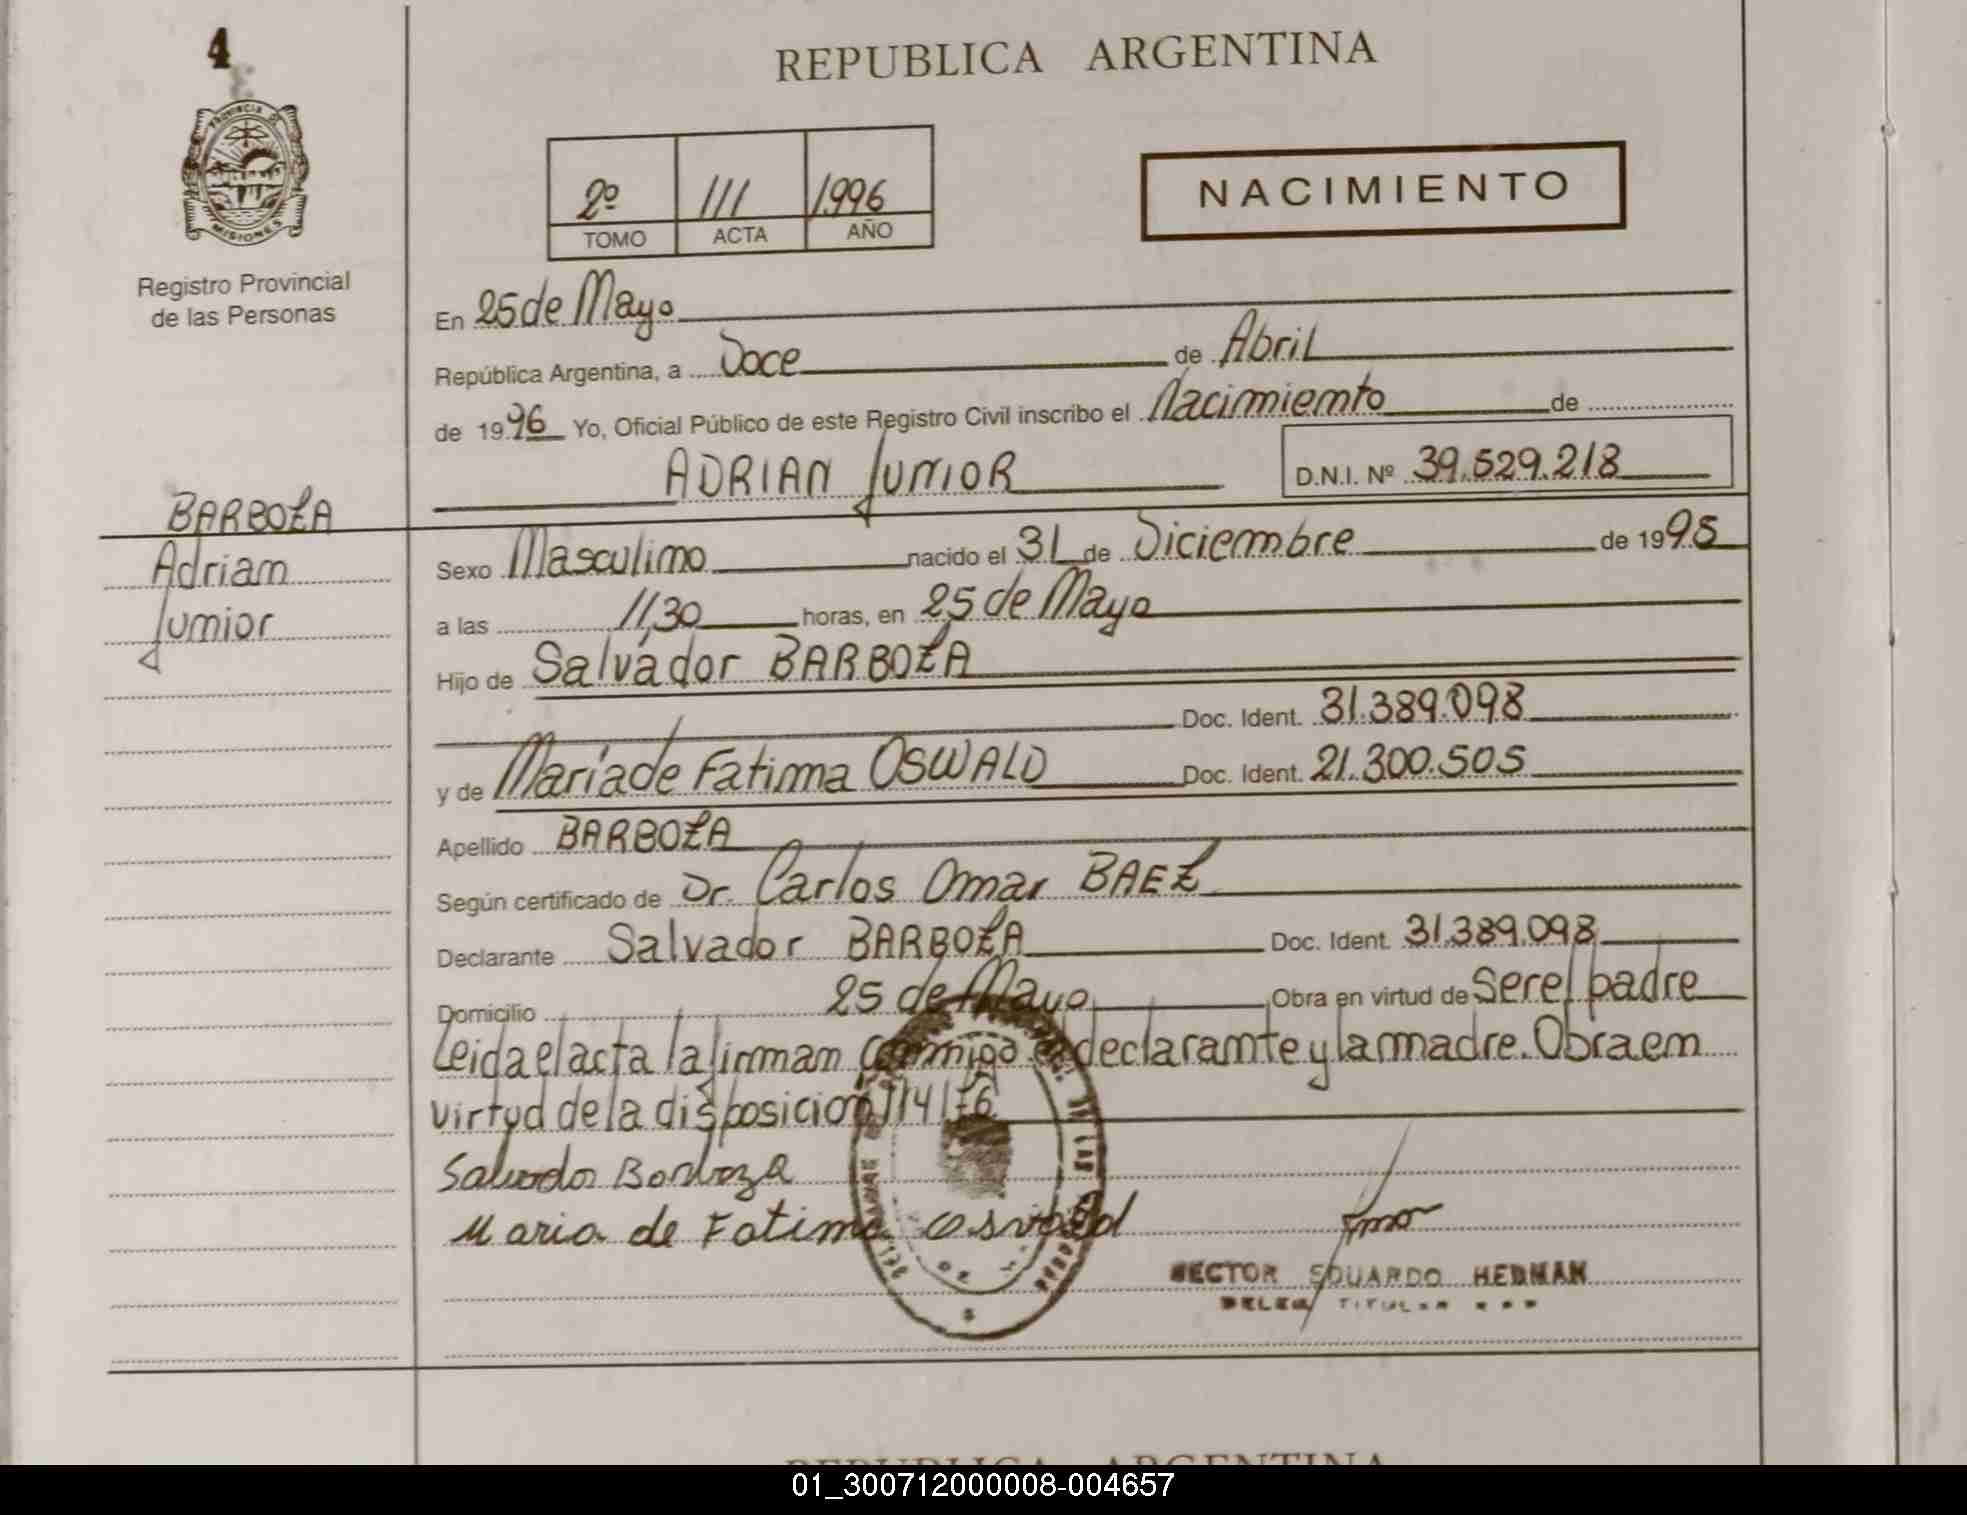 4
REPUBLICA ARGENTINA
PROVINCIA DE
MISIONES
2º 111 1996
TOMO ACTA AÑO
NACIMIENTO
Registro Provincial
de las Personas
En 25 de Mayo
República Argentina, a Doce de Abril
de 1996 Yo, Oficial Público de este Registro Civil inscribo el Nacimiento de
ADRIAN JUNIOR D.N.I. Nº 39.529.218
BARBOZA
Adrian
Junior
Sexo Masculino nacido el 31 de Diciembre de 1995
a las 11,30 horas, en 25 de Mayo
Hijo de Salvador BARBOZA
Doc. Ident. 31.389.098
y de María de Fatima OSWALD Doc. Ident. 21.300.505
Apellido BARBOZA
Según certificado de Dr. Carlos Omar BAEZ
Declarante Salvador BARBOZA Doc. Ident. 31.389.098
Domicilio 25 de Mayo Obra en virtud de Ser el padre
Leida el acta la firman conmigo el declarante y la madre. Obra en
virtud de la disposicion 114/76
Salvador Barboza
Maria de Fatima Oswald
HECTOR EDUARDO HEDMAN
DELEG TITULAR
REPUBLICA ARGENTINA
01_300712000008-004657